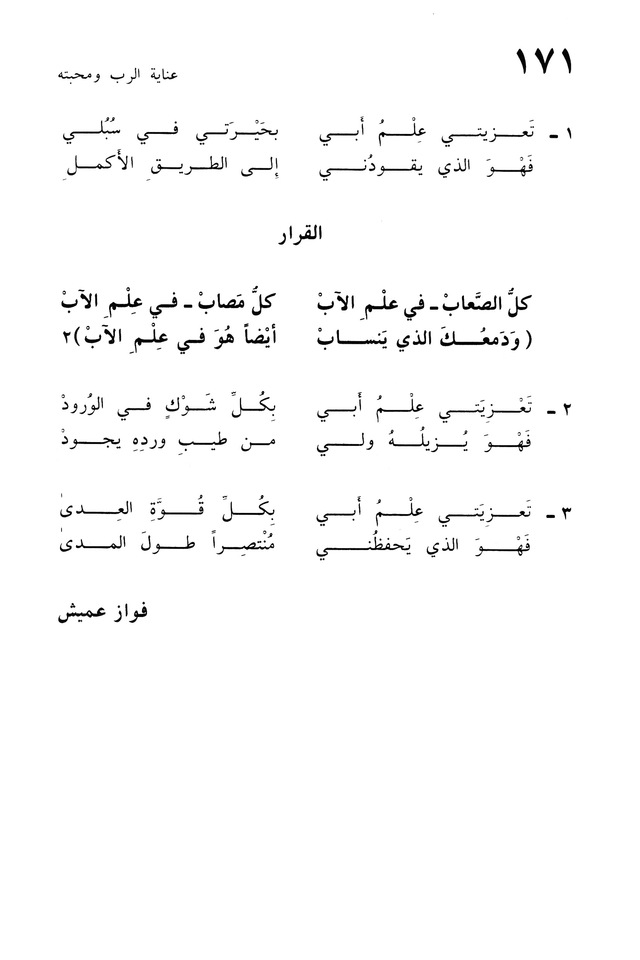 ١٧١
عناية الرب ومحبته
١ - تَعـزيتـي عِلْـمُ أَبـي بحَيْـرَتـي فـي سُبُلـي
فَهْـوَ الذي يقودُنـي إلـى الطريـقِ الأكمـلِ
القرار
كلُّ الصَّعابْ - في عِلْمِ الآبْ كلُّ مَصابْ - فـي عِلْـمِ الآبْ
( وَدَمعُـكَ الذي يَنسـابْ أيْضاً هُوَ فـي عِلْـمِ الآبْ)٢
٢ - تَعْـزِيَتـي عِلْـمُ أَبـي بِكُـلِّ شَـوْكٍ فـي الوُرودْ
فَهْـوَ يُـزيلُـهُ ولـي مـن طيـبِ وردِهِ يجـودْ
٣ - تَعـزِيَتـي عِلْـمُ أَبـي بِكُـلِّ قُـوَّةِ العِـدىٰ
فَهْـوَ الذي يَحفظُنـي مُنْتصِـراً طـولَ المـدىٰ
فواز عميش